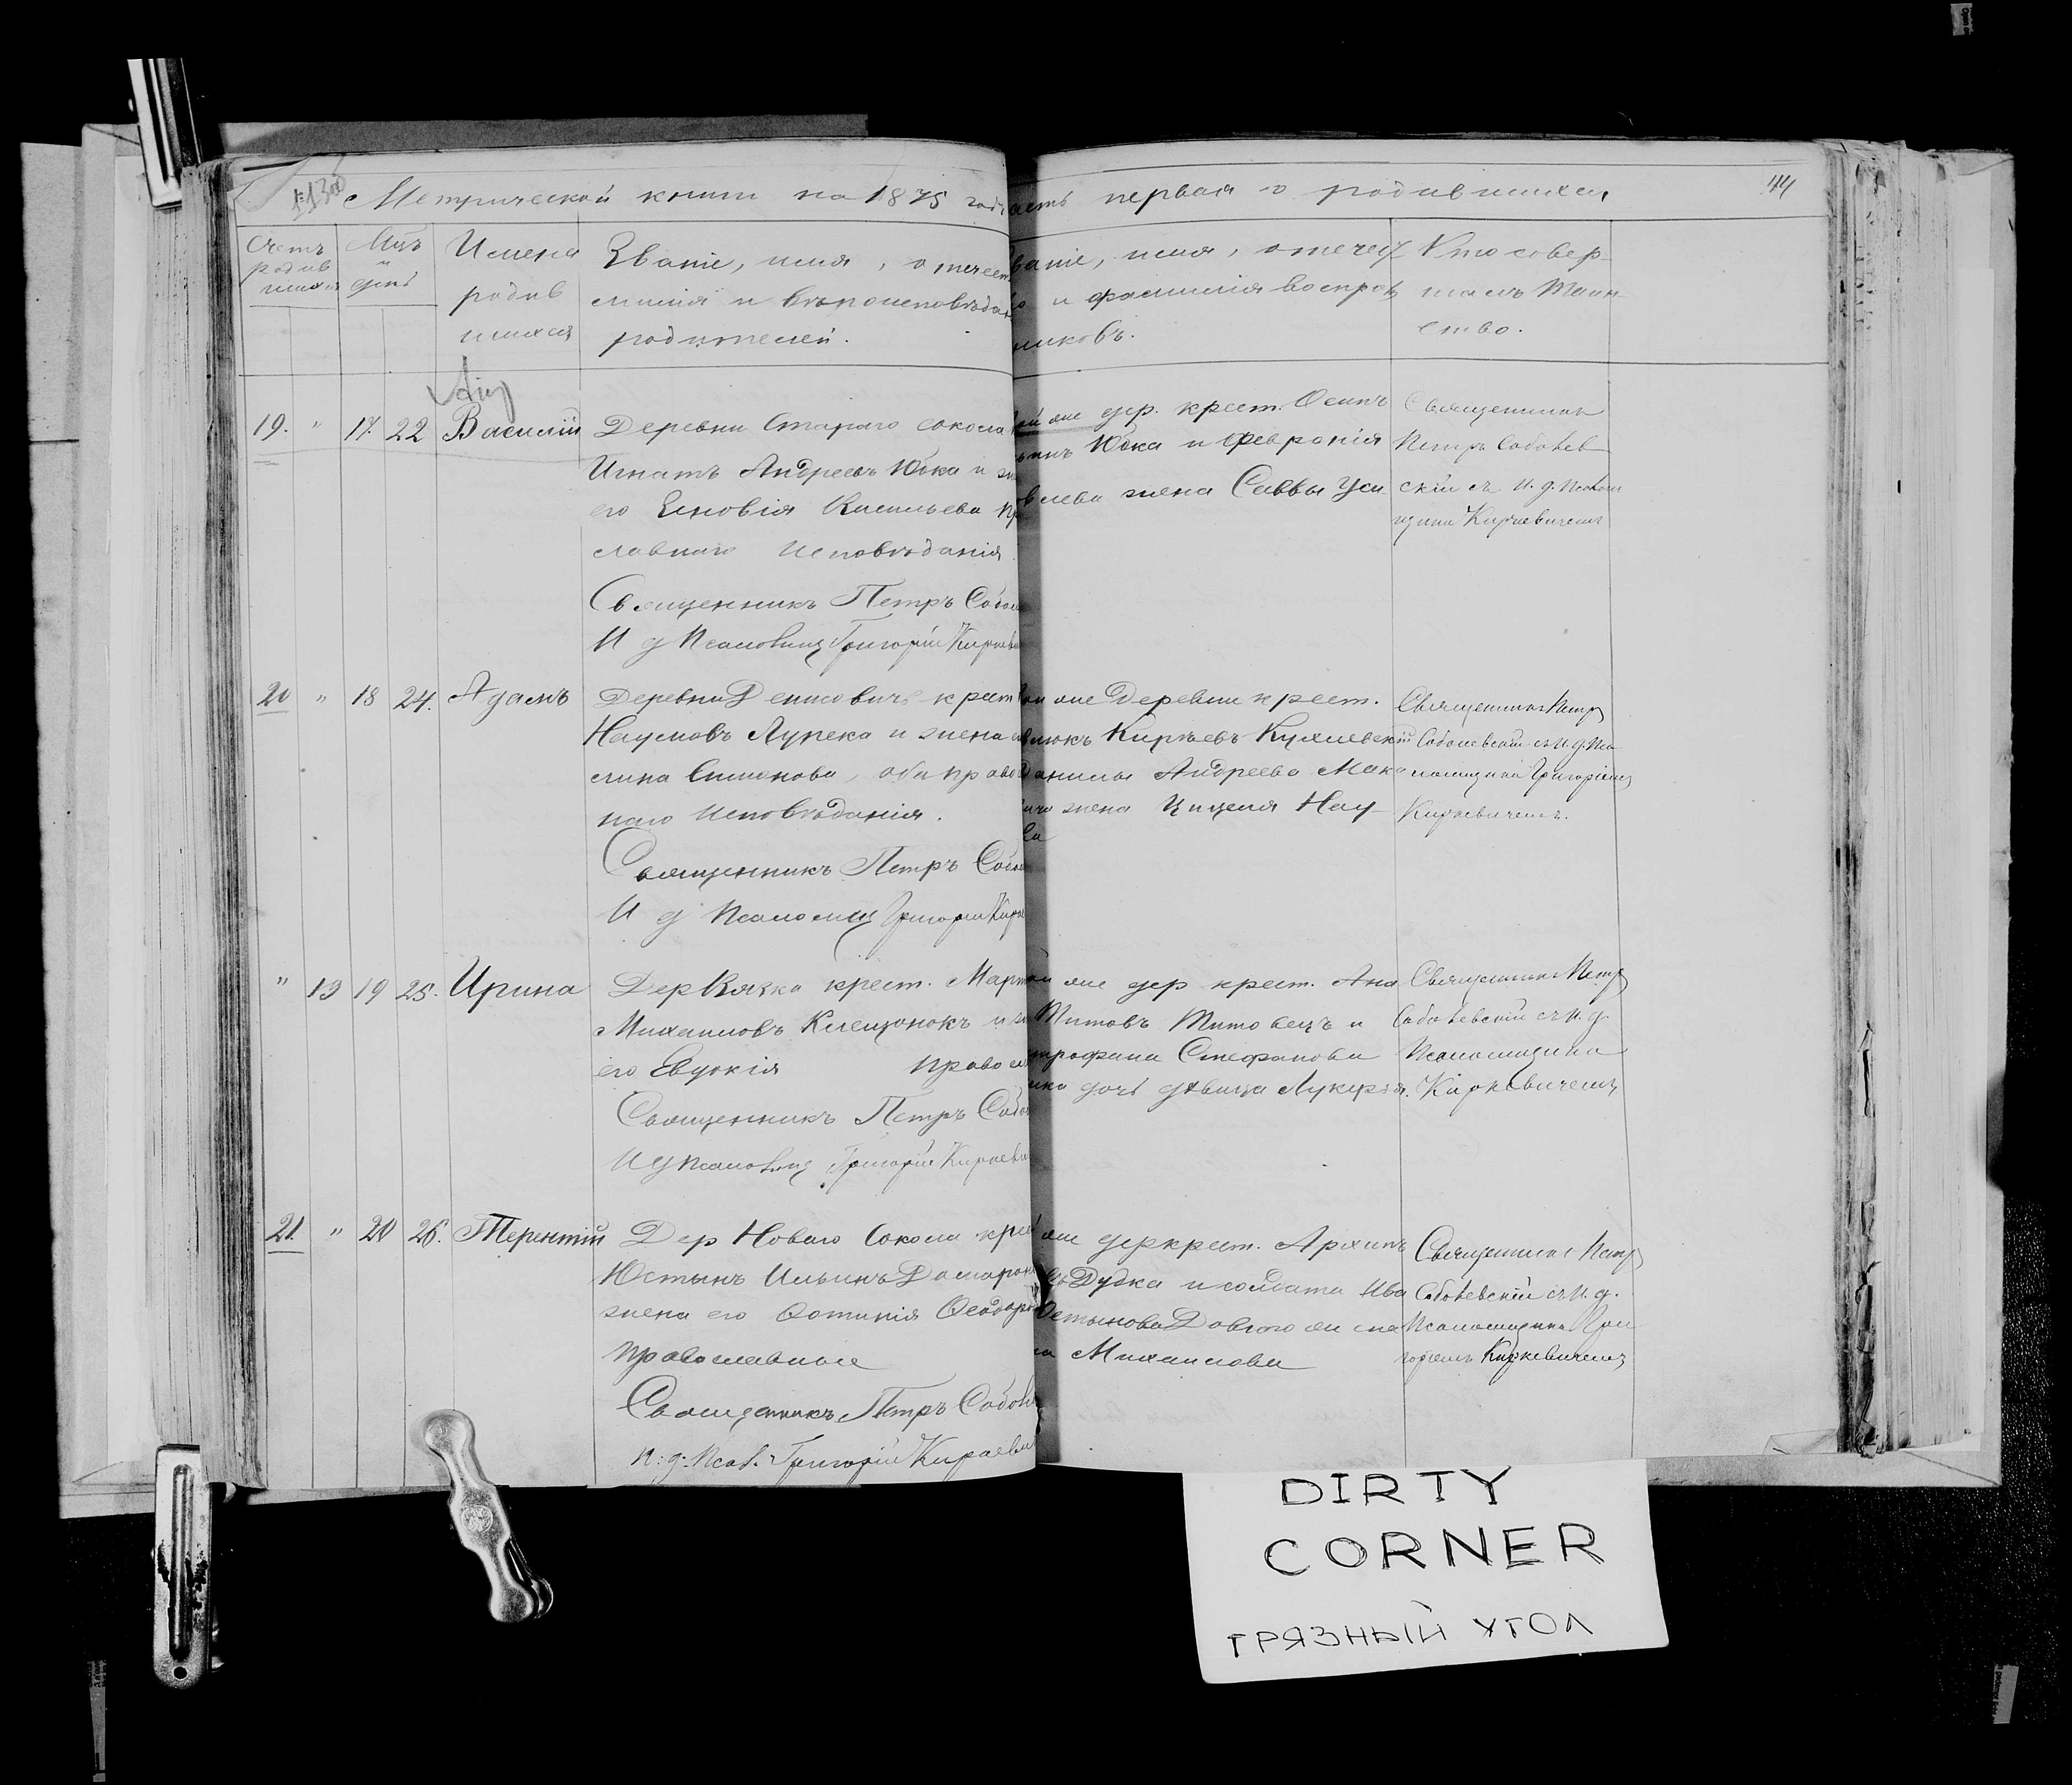 Метрической книги на 1875 годъ
асть первая о родившихся
44
Счетъ родив шихся
Мць и день
Имена родив шихся
Званіе, имя, отечест
милія и вѣроисповѣдан
родителей.
ваніе, имя, отечест
о и фамилія воспріем
никовъ.
Кто совер-
шалъ Таин-
ство.
19. " 17 22 Василій
Деревни Стараго Сокола
Игнатъ Андреевъ Юбка и
его Зиновія Васильева пр
славнаго исповѣданія
Священникъ Петръ Собол
И д Псаломщ Григорій Киркеви
ой же дер. крест. Осипъ
инъ Юбка и Февронія
влева жена Саввы
Священникъ
Петръ Соболев
скій съ и. д. Псалом
щика Киркевичемъ
20 " 18 24. Адамъ
Деревни Денисовичъ крест
Наумовъ Лупека и жена
лина Симонова, оба право
наго исповѣданія.
Священникъ Петръ Собол
И д Псаломщ Григорій Кирк
ой же Деревни крест.
Кирѣевъ
Данилы Андреева Мака
жена Цицелія Нау-
ва
Священникъ Петръ
Соболевскій съ и. д. Пса
ломщика Григоріемъ
Киркевичемъ.
" 13 19 25. Ирина
Дер Вязка крест. Март
Михаиловъ Клещонокъ и
его Евдокія Правосл
Священникъ Петръ Собол
И д Псаломщ Григорій Киркеви
ой же дер крест. Ана
Титовъ Титовецъ и
трофана Стефанова
дочь дѣвица Лукерія.
Священникъ Петръ
Соболевскій съ и. д.
Псаломщика
Киркевичемъ
21. " 20 26. Терентій
Дер Новаго Сокола крес
Юстынъ Ильинъ
жена его Фотинія Феодоро
Православные
Священникъ Петръ Соболе
и: д: Псал. Григорій Киркеви
же дер крест. Архипъ
Дудка и солдата Ива
жена
Михаилова
Священникъ Петръ
Соболевскій съ и. д.
Псаломщика Гри
горіемъ Киркевичемъ
DIRTY
CORNER
ГРЯЗНЫЙ УГОЛ